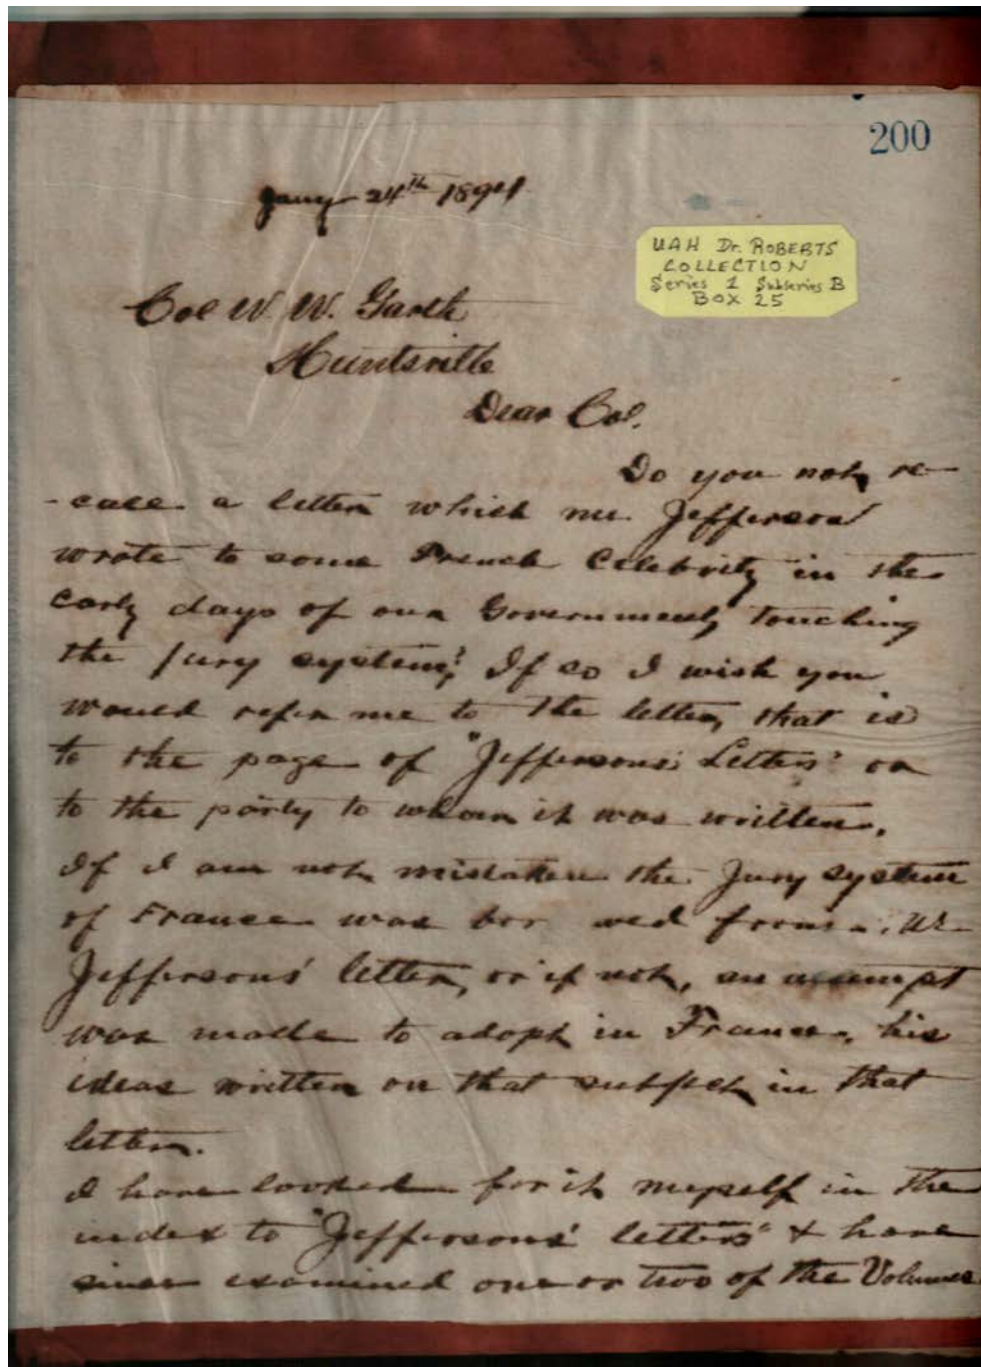 200
Jany 24th 1894
UAH Dr. ROBERTS
COLLECTION
Series 1 Subseries B
BOX 25
Col W. W. Garth
Huntsville
Dear Col.
Do you not re-
-call a letter which Mr. Jefferson
wrote to some French Celebrity in the
early days of our Government, touching
the jury system? If so I wish you
would refer me to the letter, that is
to the page of "Jeffersons' Letters" or
to the party to whom it was written.
If I am not mistaken the Jury system
of France was bor wed from Mr
Jeffersons' letter, or if not, an attempt
was made to adopt in France, his
ideas written on that subject in that
letter.
I have looked for it myself in the
index to "Jeffersons' letters" & have
since examined one or two of the Volumes